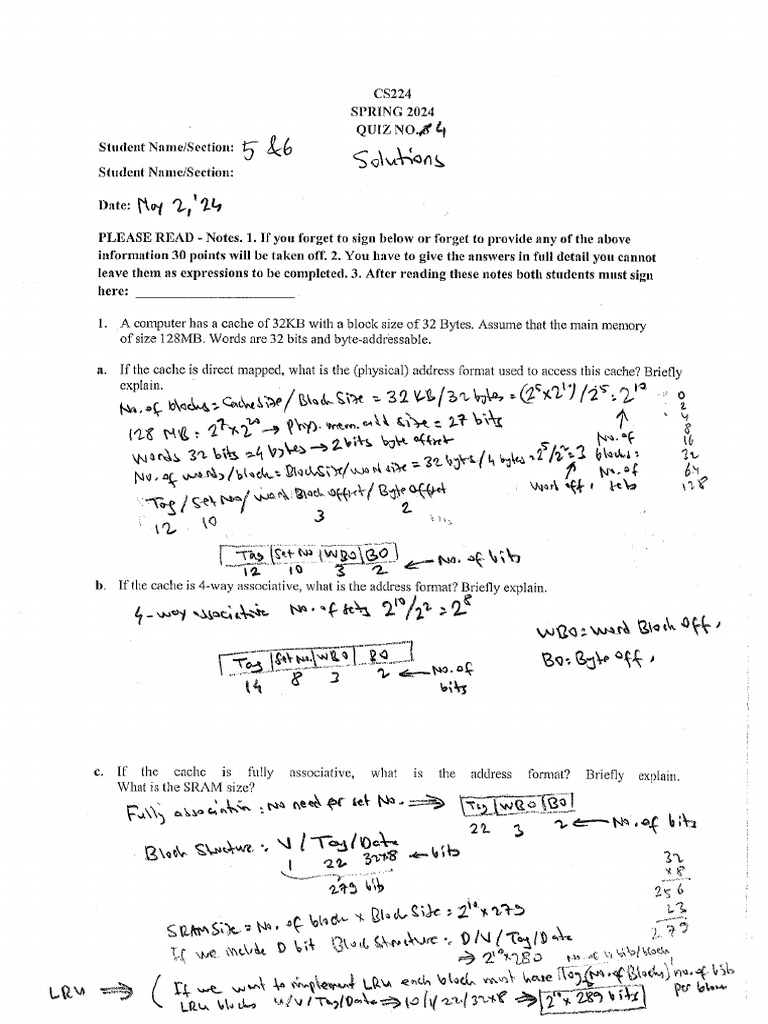 CS224
SPRING 2024
QUIZ NO. 4
Solutions
Student Name/Section: 5 &6
Student Name/Section:
Date: May 2, '24
PLEASE READ - Notes. 1. If you forget to sign below or forget to provide any of the above
information 30 points will be taken off. 2. You have to give the answers in full detail you cannot
leave them as expressions to be completed. 3. After reading these notes both students must sign
here: ____________________
1. A computer has a cache of 32KB with a block size of 32 Bytes. Assume that the main memory
of size 128MB. Words are 32 bits and byte-addressable.
a. If the cache is direct mapped, what is the (physical) address format used to access this cache? Briefly
explain.
No. of blocks = Cache Size / Block Size = 32 KB/32 bytes = (2^5 x 2^10) / 2^5 = 2^10
128 MB = 2^7 x 2^20 → Phys. mem. add size = 27 bits
Words 32 bits = 4 bytes → 2 bits byte offset
No. of words/block = Block Size/word size = 32 bytes / 4 bytes = 2^5/2^2 = 3
No. of
blocks =
No. of
sets
Word off.
0
2
4
8
16
32
64
128
Tag / Set No / Word Block Offset / Byte Offset
12 10 3 2
Tag | Set No | WBO | BO ← No. of bits
12 10 3 2
b. If the cache is 4-way associative, what is the address format? Briefly explain.
4-way associative No. of sets 2^10/2^2 = 2^8
WBO = Word Block Off,
BO = Byte Off,
Tag | Set No. | WBO | BO
14 8 3 2 ← No. of
bits
c. If the cache is fully associative, what is the address format? Briefly explain.
What is the SRAM size?
Fully associative : No need for set No. ⟹ Tag | WBO | BO
22 3 2 ← No. of bits
Block Structure : V / Tag / Data
1 22 32x8 ← bits
279 bits
32
x8
256
23
279
SRAM Size = No. of block x Block Size = 2^10 x 279
If we include D bit Block Structure : D/V/Tag/Data
→ 2^10 x 280
No. of bits/block
LRU ⟹ (If we want to implement LRU each block must have log(No. of Blocks) no. of bits
per block
LRU blocks U/V/Tag/Data ⟹ 10/1/22/32x8 ⟹ 2^10 x 289 bits